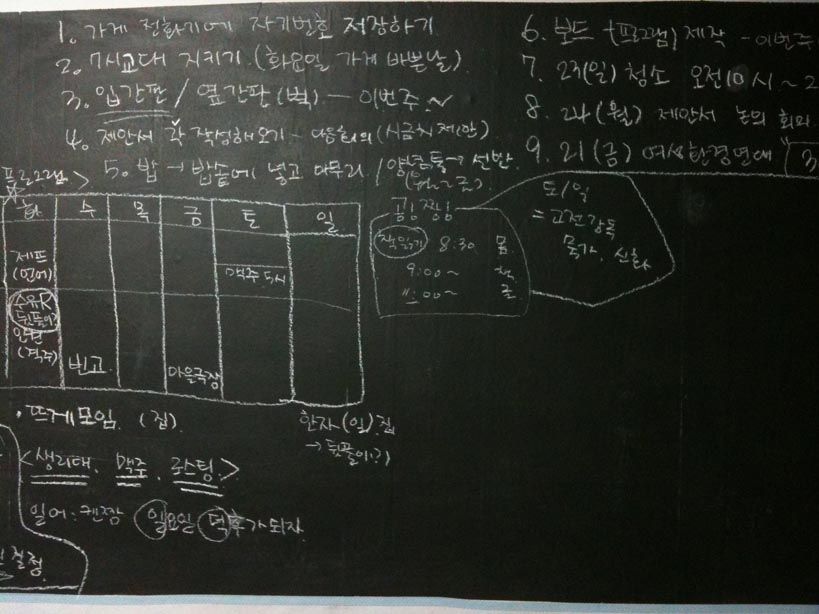 1. 가게 전화기에 자기번호 저장하기
2. 7시교대 지키기 (화요일 가게 바쁜날)
3. 입간판 / 옆간판(벽) — 이번주~
4. 제안서 각 작성해오기 - 다음회의 (시금치 제안)
5. 밥 → 밥솥에 넣고 마무리 / 양념통→ 선반
6. 보드 (프로그램) 제작 - 이번주
7. 23(일) 청소 오전10시 ~ 2
8. 24(월) 제안서 논의 회의
9. 21(금)
프로그램>
화 수 목 금 토 일
제프
(언어)
맥주 5시
수유R
(격주)
빈고
마을극장
공장장님
책읽기 8:30 몸
9:00~ 책
11:00~ 글
토/일
= 고전강독
목가
· 뜨게모임 (집)
한자(일) 집
→ 뒷풀이(?)
<생리대, 맥주, 로스팅>
일어: 켄짱 일요일 덕후가되자
결정